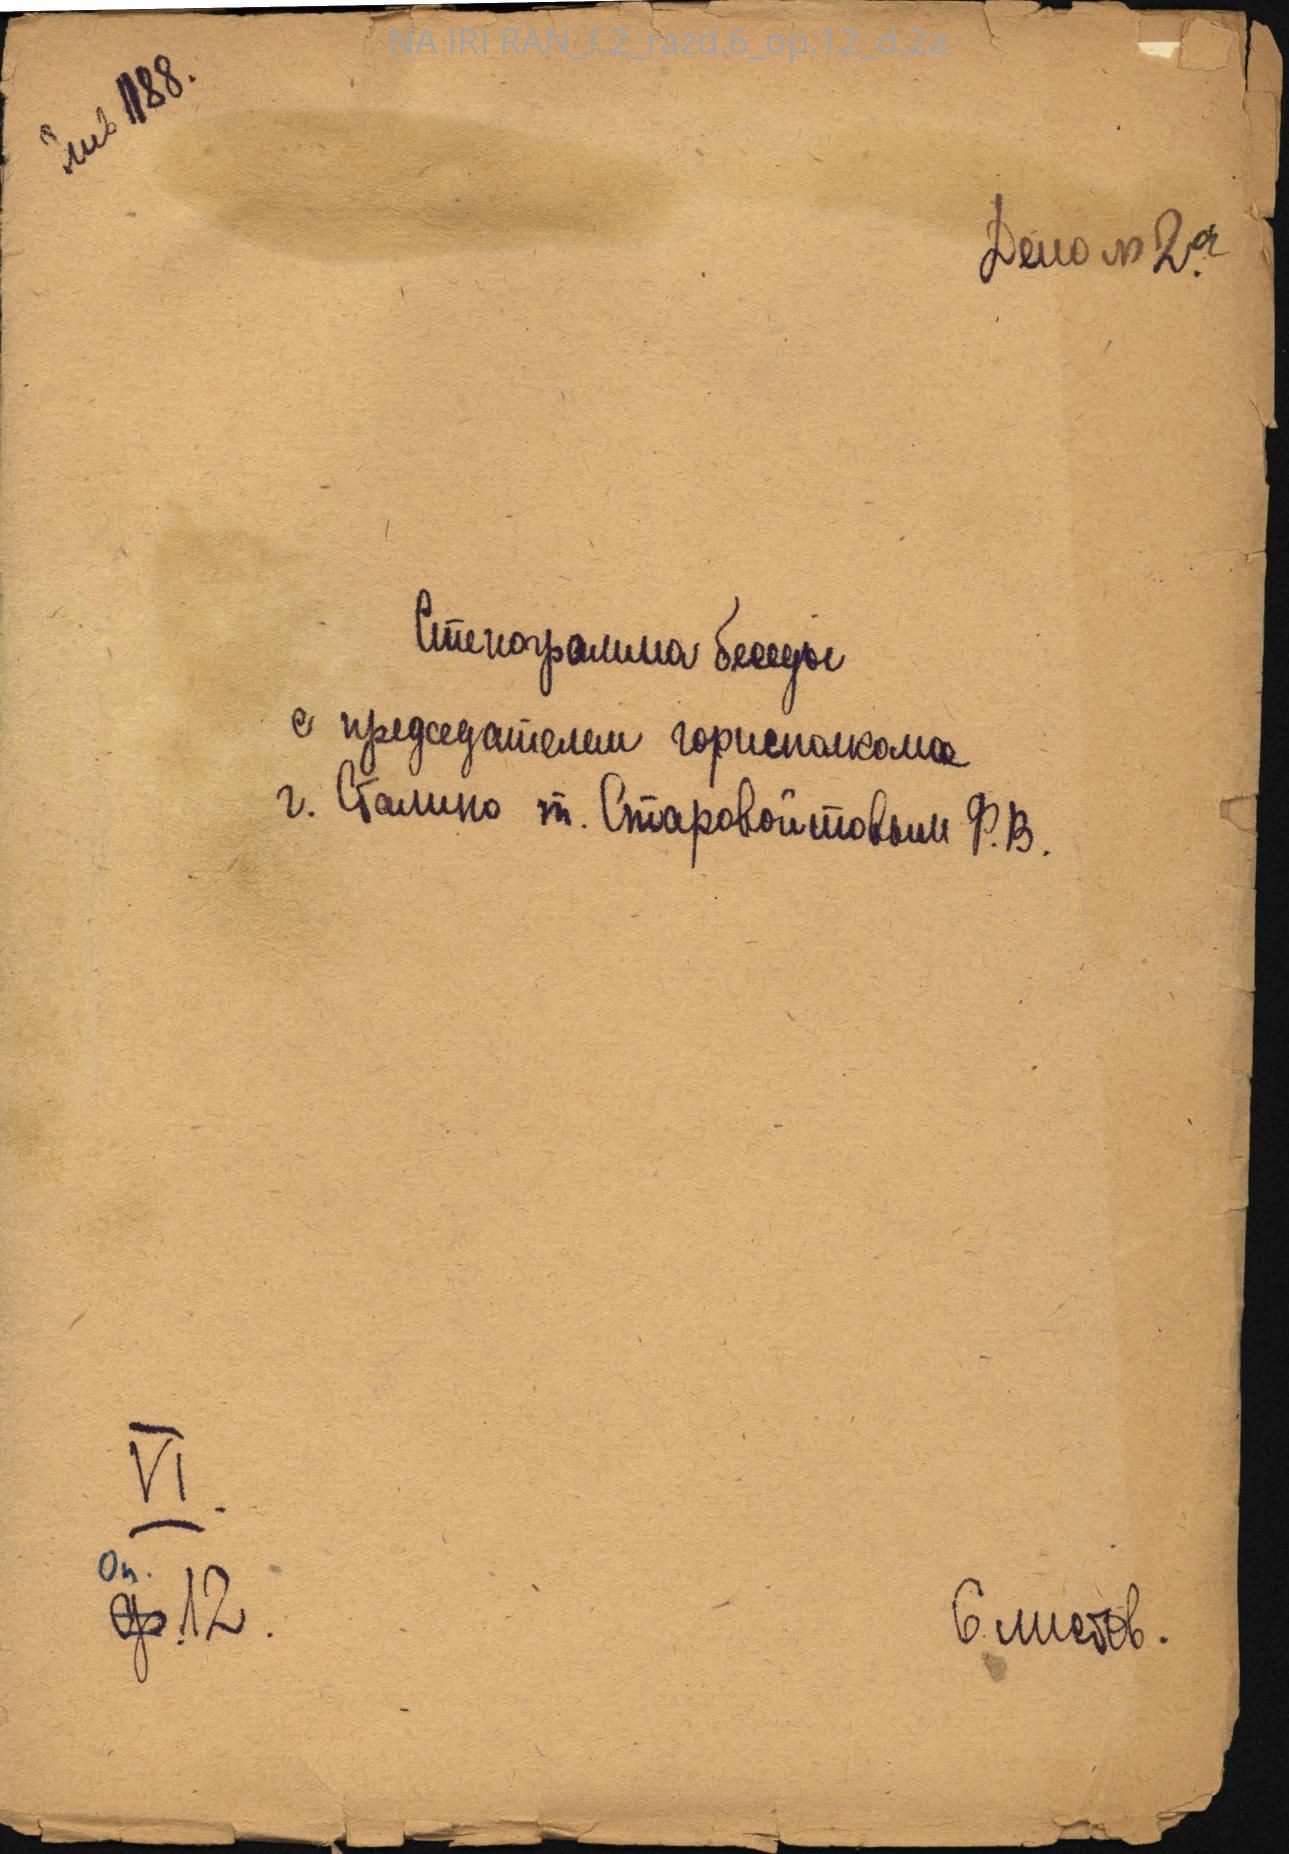 NA IRI RAN_f.2_razd.6_op.12_d.2a
1188.
Дело № 2а
Стенограмма беседы
с председателем горисполкома
г. Сталино т. Старовойтовым Ф.В.
VI.
Оп.
ф.12.
6 листов.